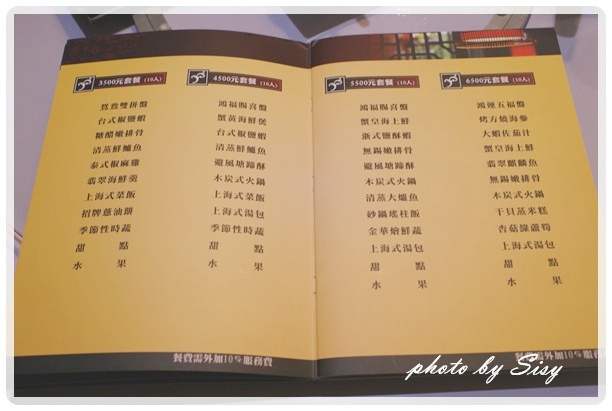 3500元套餐 (10人)
鴛鴦雙拼盤
台式椒鹽蝦
糖醋嫩排骨
清蒸鮮鱸魚
泰式椒麻雞
翡翠海鮮羹
上海式菜飯
招牌蔥油餅
季節性時蔬
甜點
水果
4500元套餐 (10人)
鴻福賜喜盤
蟹黃海鮮煲
台式椒鹽蝦
清蒸鮮鱸魚
避風塘蹄酥
木炭式火鍋
上海式菜飯
上海式湯包
季節性時蔬
甜點
水果
餐費需外加10%服務費
5500元套餐 (10人)
鴻福賜喜盤
蟹皇海上鮮
浙式鹽酥蝦
無錫嫩排骨
避風塘蹄酥
木炭式火鍋
清蒸大鱸魚
砂鍋瑤柱飯
金華燴鮮蔬
上海式湯包
甜點
水果
6500元套餐 (10人)
鴻運五福盤
烤方燒海參
大蝦佐茄汁
蟹皇海上鮮
翡翠麒麟魚
無錫嫩排骨
木炭式火鍋
干貝蒸米糕
杏菇綠蘆筍
上海式湯包
甜點
水果
餐費需外加10%服務費
photo by Sisy